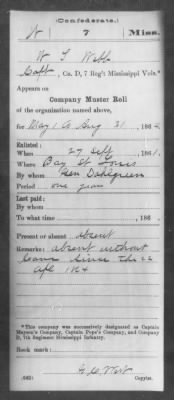 (Confederate.)
W 7 Miss.
W T Webb
Capt, Co. D, 7 Reg't Mississippi Vols.*
Appears on
Company Muster Roll
of the organization named above,
for May 1 to Aug 31, 186
Enlisted:
When 27 Sept, 1861.
Where Bay St Louis
By whom Gen Dahlgreen
Period one year
Last paid:
By whom
To what time , 186 .
Present or absent absent
Remarks: absent without
leave since the 22
Apl 1864
*This company was successively designated as Captain
Captain Pope's Company, and Company
D, 7th Regiment Mississippi Infantry.
Book mark:
(642)
Copyist.